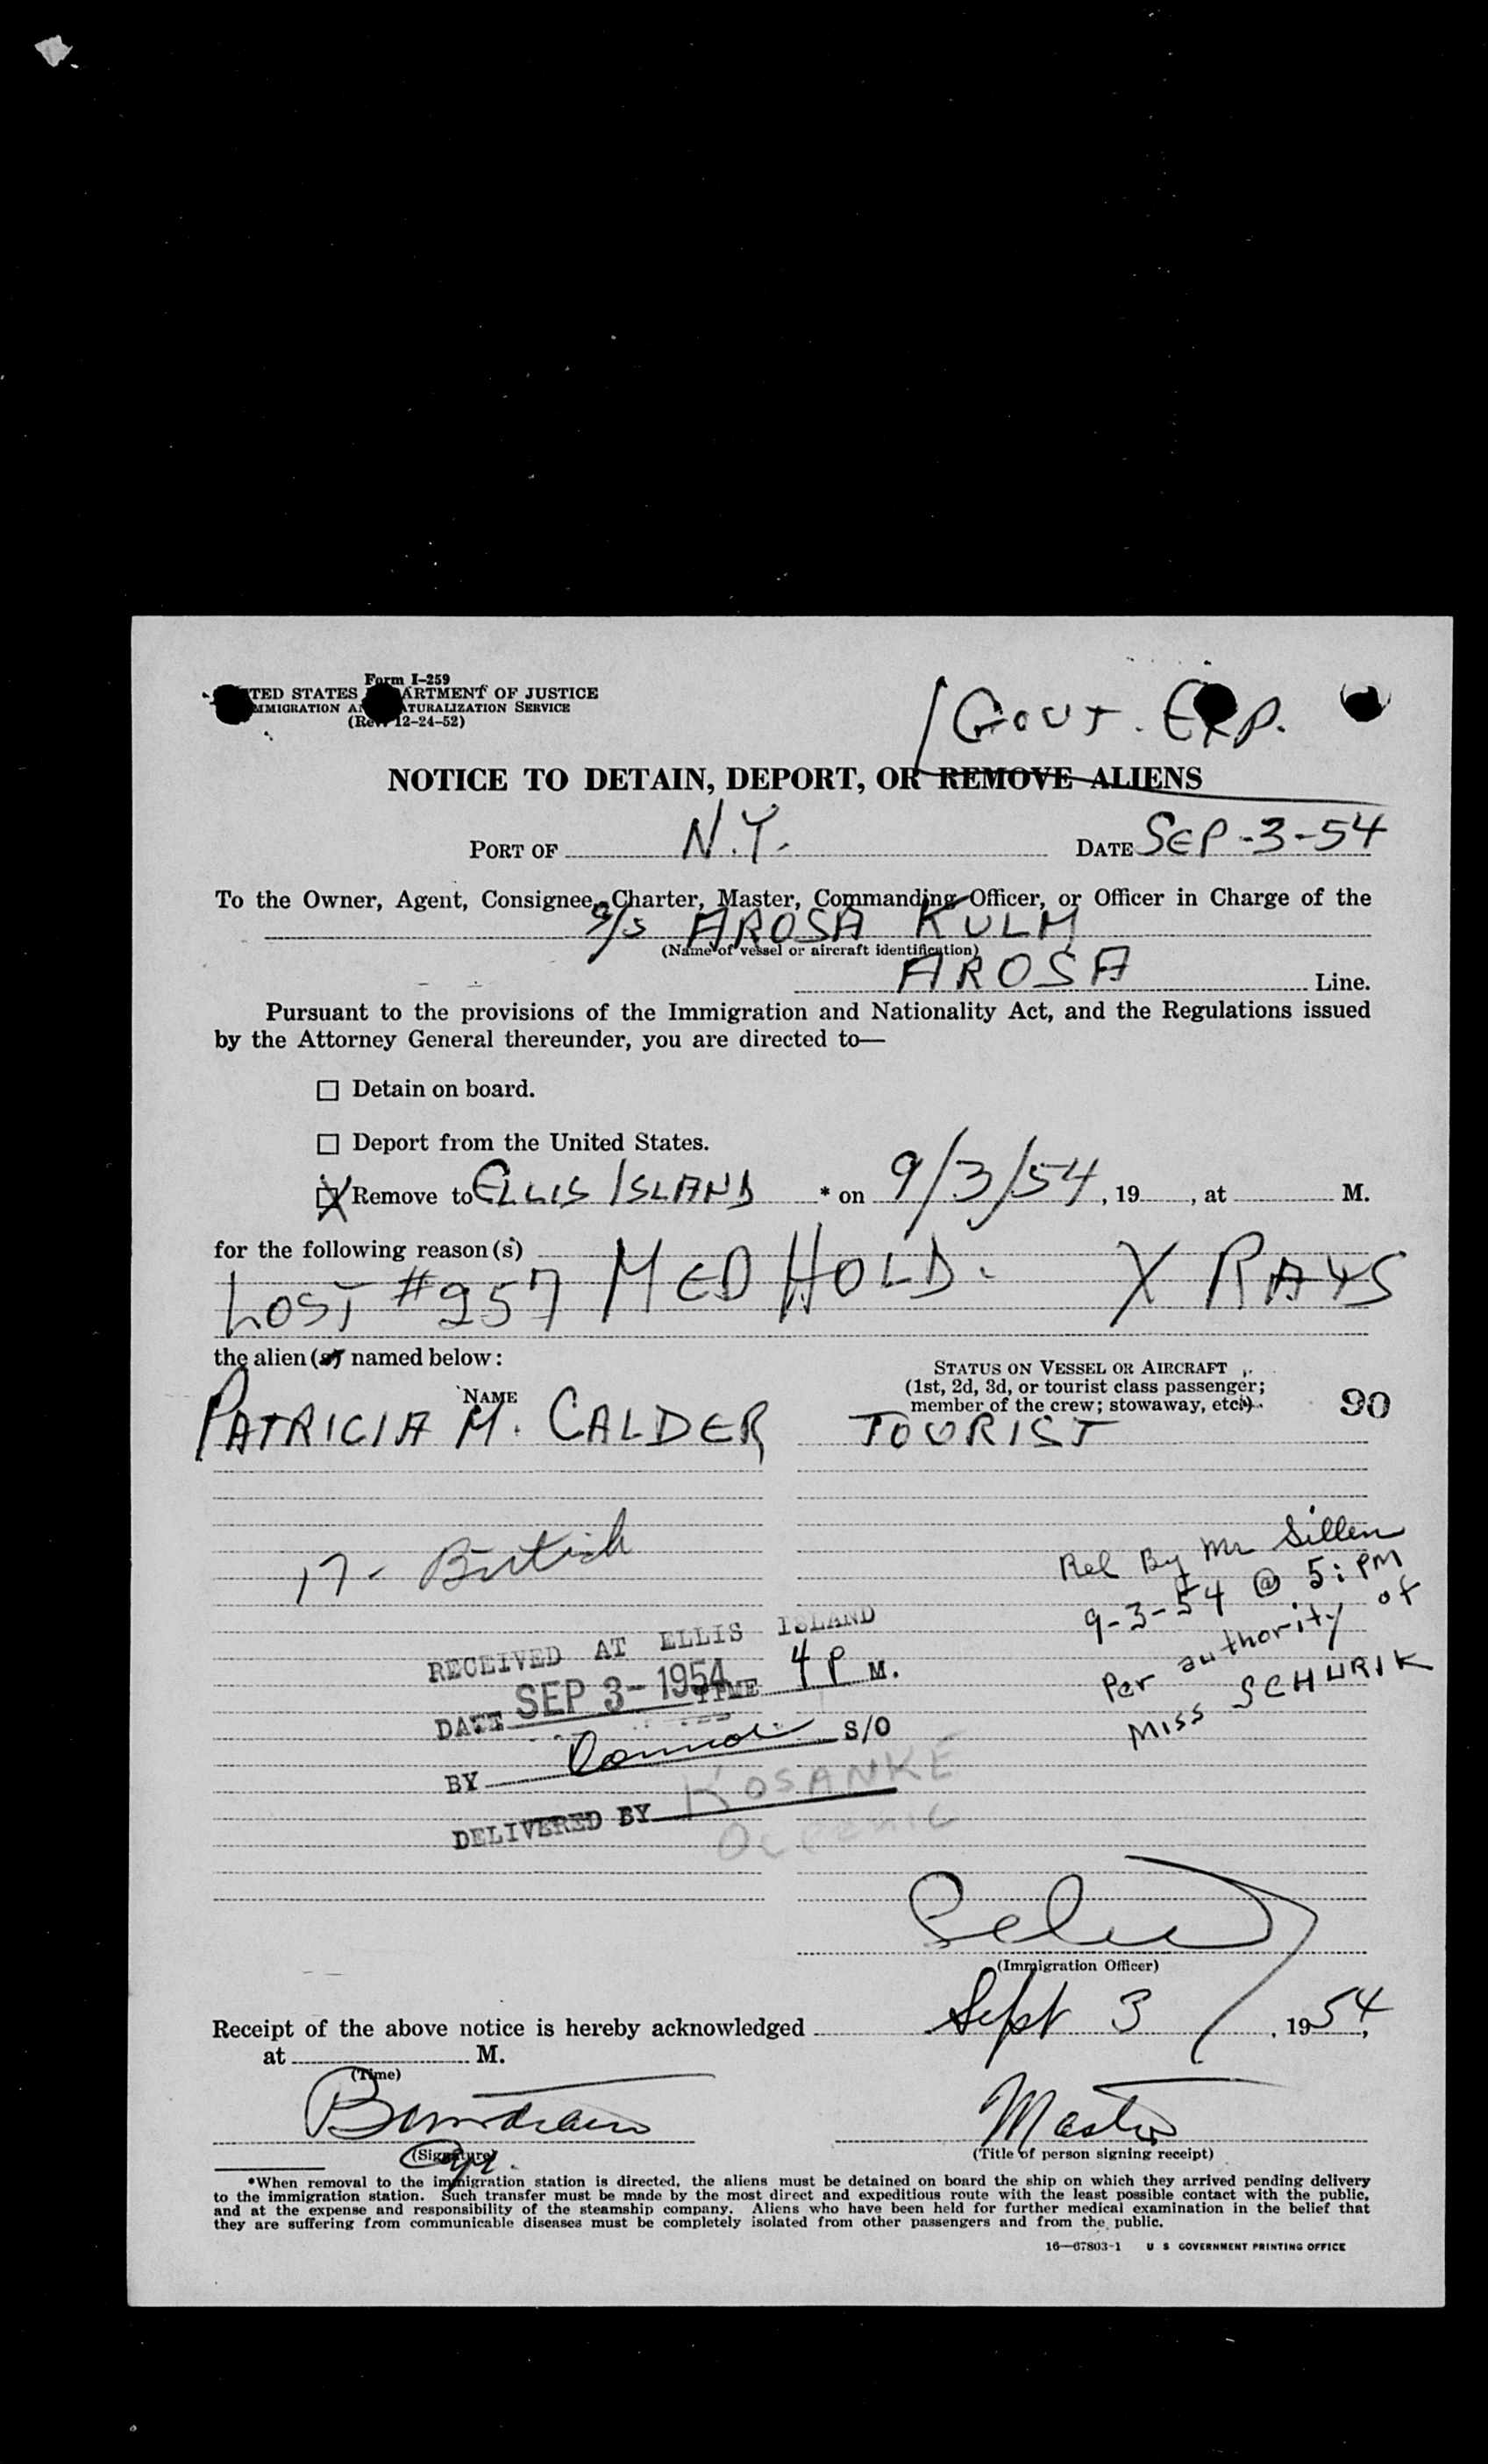 Form I-259
TED STATES ARTMENT OF JUSTICE
MMIGRATION A ATURALIZATION SERVICE
(Rev. 12-24-52)
GOVT. EXP.
NOTICE TO DETAIN, DEPORT, OR REMOVE ALIENS
PORT OF N.Y. DATE SEP-3-54
To the Owner, Agent, Consignee, Charter, Master, Commanding Officer, or Officer in Charge of the
S/S AROSA KULM
(Name of vessel or aircraft identification)
AROSA Line.
Pursuant to the provisions of the Immigration and Nationality Act, and the Regulations issued
by the Attorney General thereunder, you are directed to—
☐ Detain on board.
☐ Deport from the United States.
☒ Remove to ELLIS ISLAND * on 9/3/54, 19 , at M.
for the following reason(s)
LOST #257 MED HOLD. X RAYS
the alien(s) named below:
NAME
STATUS ON VESSEL OR AIRCRAFT
(1st, 2d, 3d, or tourist class passenger;
member of the crew; stowaway, etc.)
90
PATRICIA M. CALDER TOURIST
17- British
Rel By Mr Sillen
9-3-54 @ 5: PM
Per authority of
MISS SCHURIK
RECEIVED AT ELLIS ISLAND
DATE SEP 3- 1954 TIME 4 P M.
BY S/O
DELIVERED BY KOSANKE
(Immigration Officer)
Receipt of the above notice is hereby acknowledged Sept 3, 1954,
at M.
(Time)
Master
(Signature)
(Title of person signing receipt)
*When removal to the immigration station is directed, the aliens must be detained on board the ship on which they arrived pending delivery
to the immigration station. Such transfer must be made by the most direct and expeditious route with the least possible contact with the public,
and at the expense and responsibility of the steamship company. Aliens who have been held for further medical examination in the belief that
they are suffering from communicable diseases must be completely isolated from other passengers and from the public.
16—67803-1 U S GOVERNMENT PRINTING OFFICE